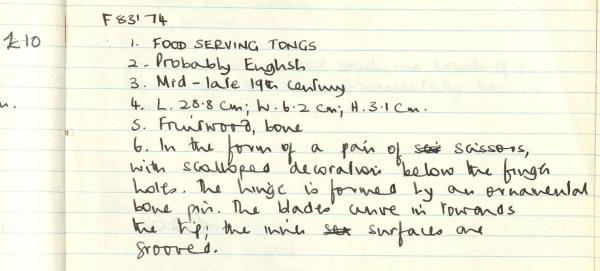 F 83/74
£10
1. FOOD SERVING TONGS
2. Probably English
3. Mid-late 19th century
4. L. 28.8 cm; W. 6.2 cm; H. 3.1 cm.
5. Fruitwood, bone
n.
6. In the form of a pair of sci scissors,
with scalloped decoration below the finger
holes. The hinge is formed by an ornamental
bone pin. The blades curve in towards
the tip; the inner surfaces are
grooved.